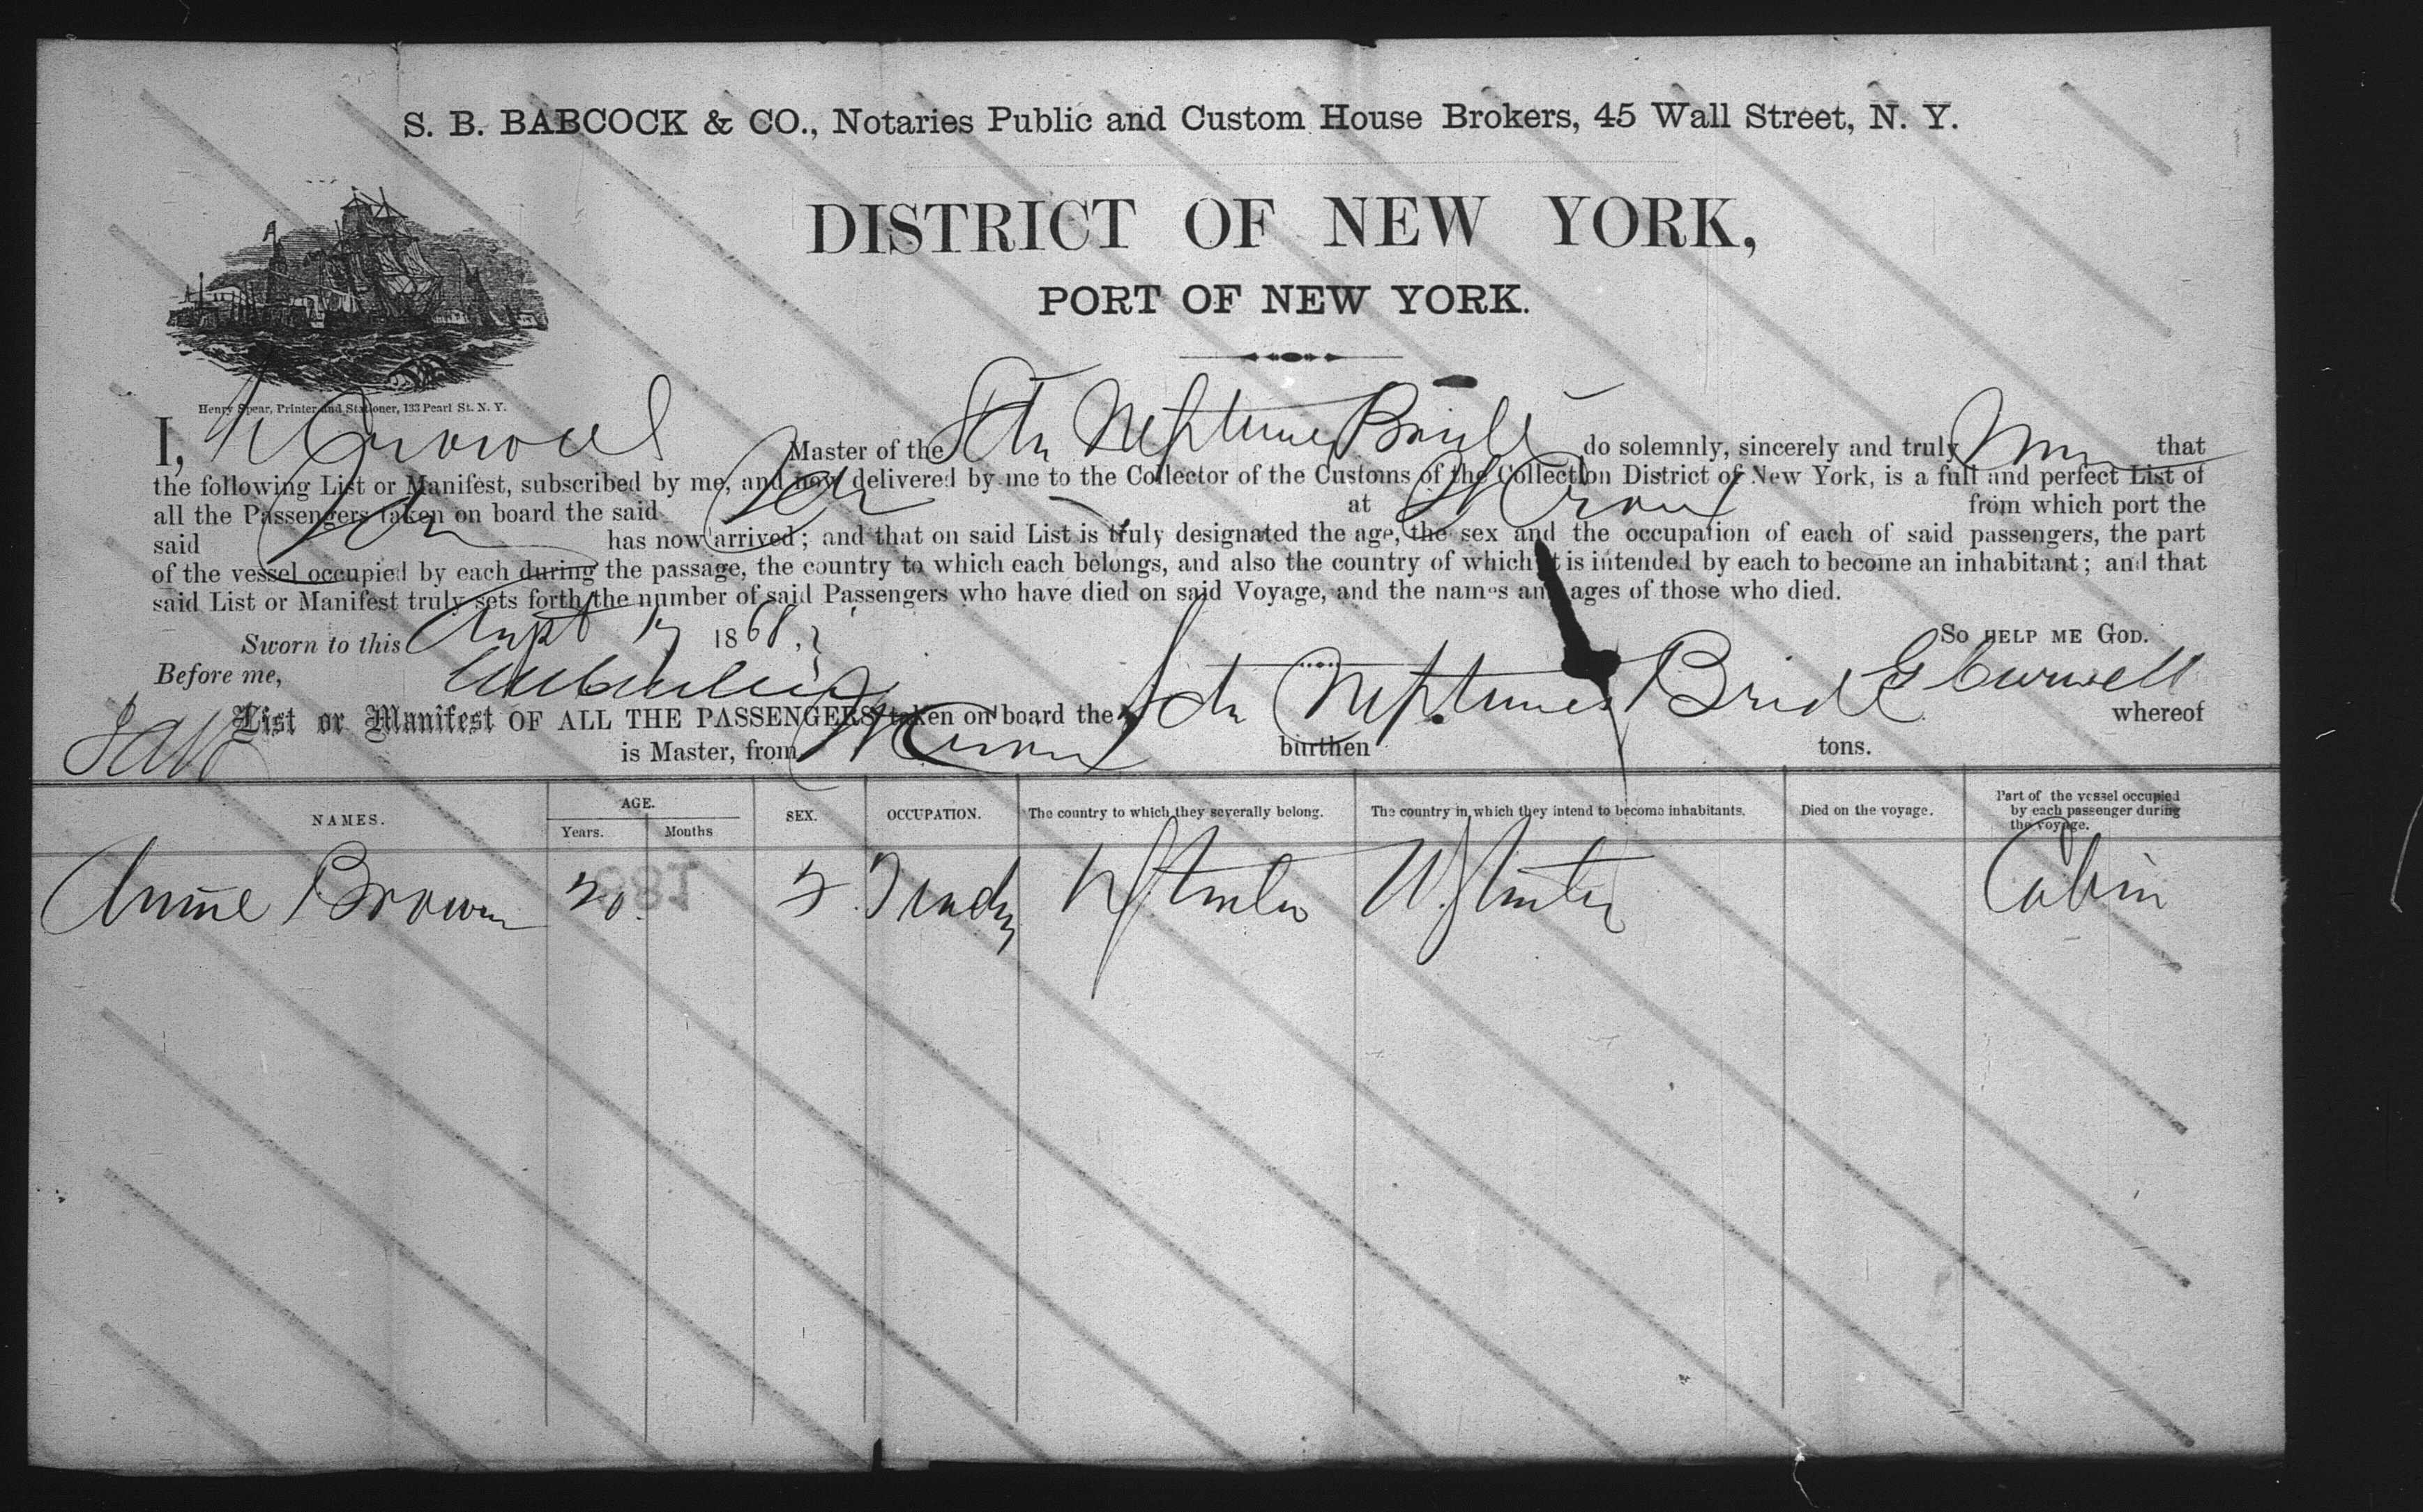 S. B. BABCOCK & CO., Notaries Public and Custom House Brokers, 45 Wall Street, N. Y.
DISTRICT OF NEW YORK,
PORT OF NEW YORK.
Henry Spear, Printer and Stationer, 133 Pearl St. N. Y.
I, Master of the Sch Neptunes Bride do solemnly, sincerely and truly that
the following List or Manifest, subscribed by me, and now delivered by me to the Collector of the Customs of the Collection District of New York, is a full and perfect List of
all the Passengers taken on board the said Sch at St Croix from which port the
said Sch has now arrived; and that on said List is truly designated the age, the sex and the occupation of each of said passengers, the part
of the vessel occupied by each during the passage, the country to which each belongs, and also the country of which it is intended by each to become an inhabitant; and that
said List or Manifest truly sets forth the number of said Passengers who have died on said Voyage, and the names and ages of those who died.
Sworn to this 1868. So HELP ME GOD.
Before me,
List or Manifest OF ALL THE PASSENGERS taken on board the Sch Neptunes Bride whereof
is Master, from St Croix burthen tons.
NAMES. AGE. Years. Months SEX. OCCUPATION. The country to which they severally belong. The country in which they intend to become inhabitants. Died on the voyage. Part of the vessel occupied by each passenger during the voyage.
Annie Brown 20 U States Cabin